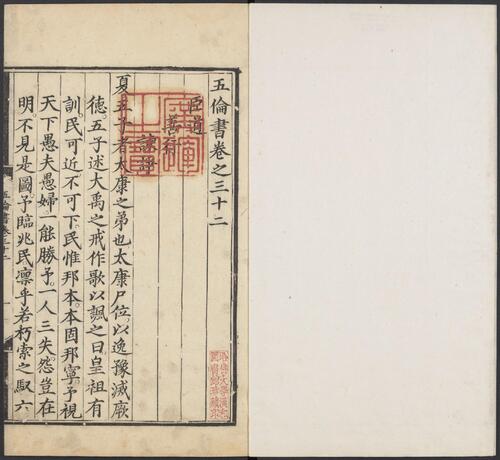 五倫書卷之三十二
臣道
善行
諫諍
夏五子者太康之弟也太康尸位以逸豫滅厥
德五子述大禹之戒作歌以諷之曰皇祖有
訓民可近不可下民惟邦本本固邦寧予視
天下愚夫愚婦一能勝予一人三失怨豈在
明不見是圖予臨兆民凛乎若朽索之馭六
五倫書卷三十二
一